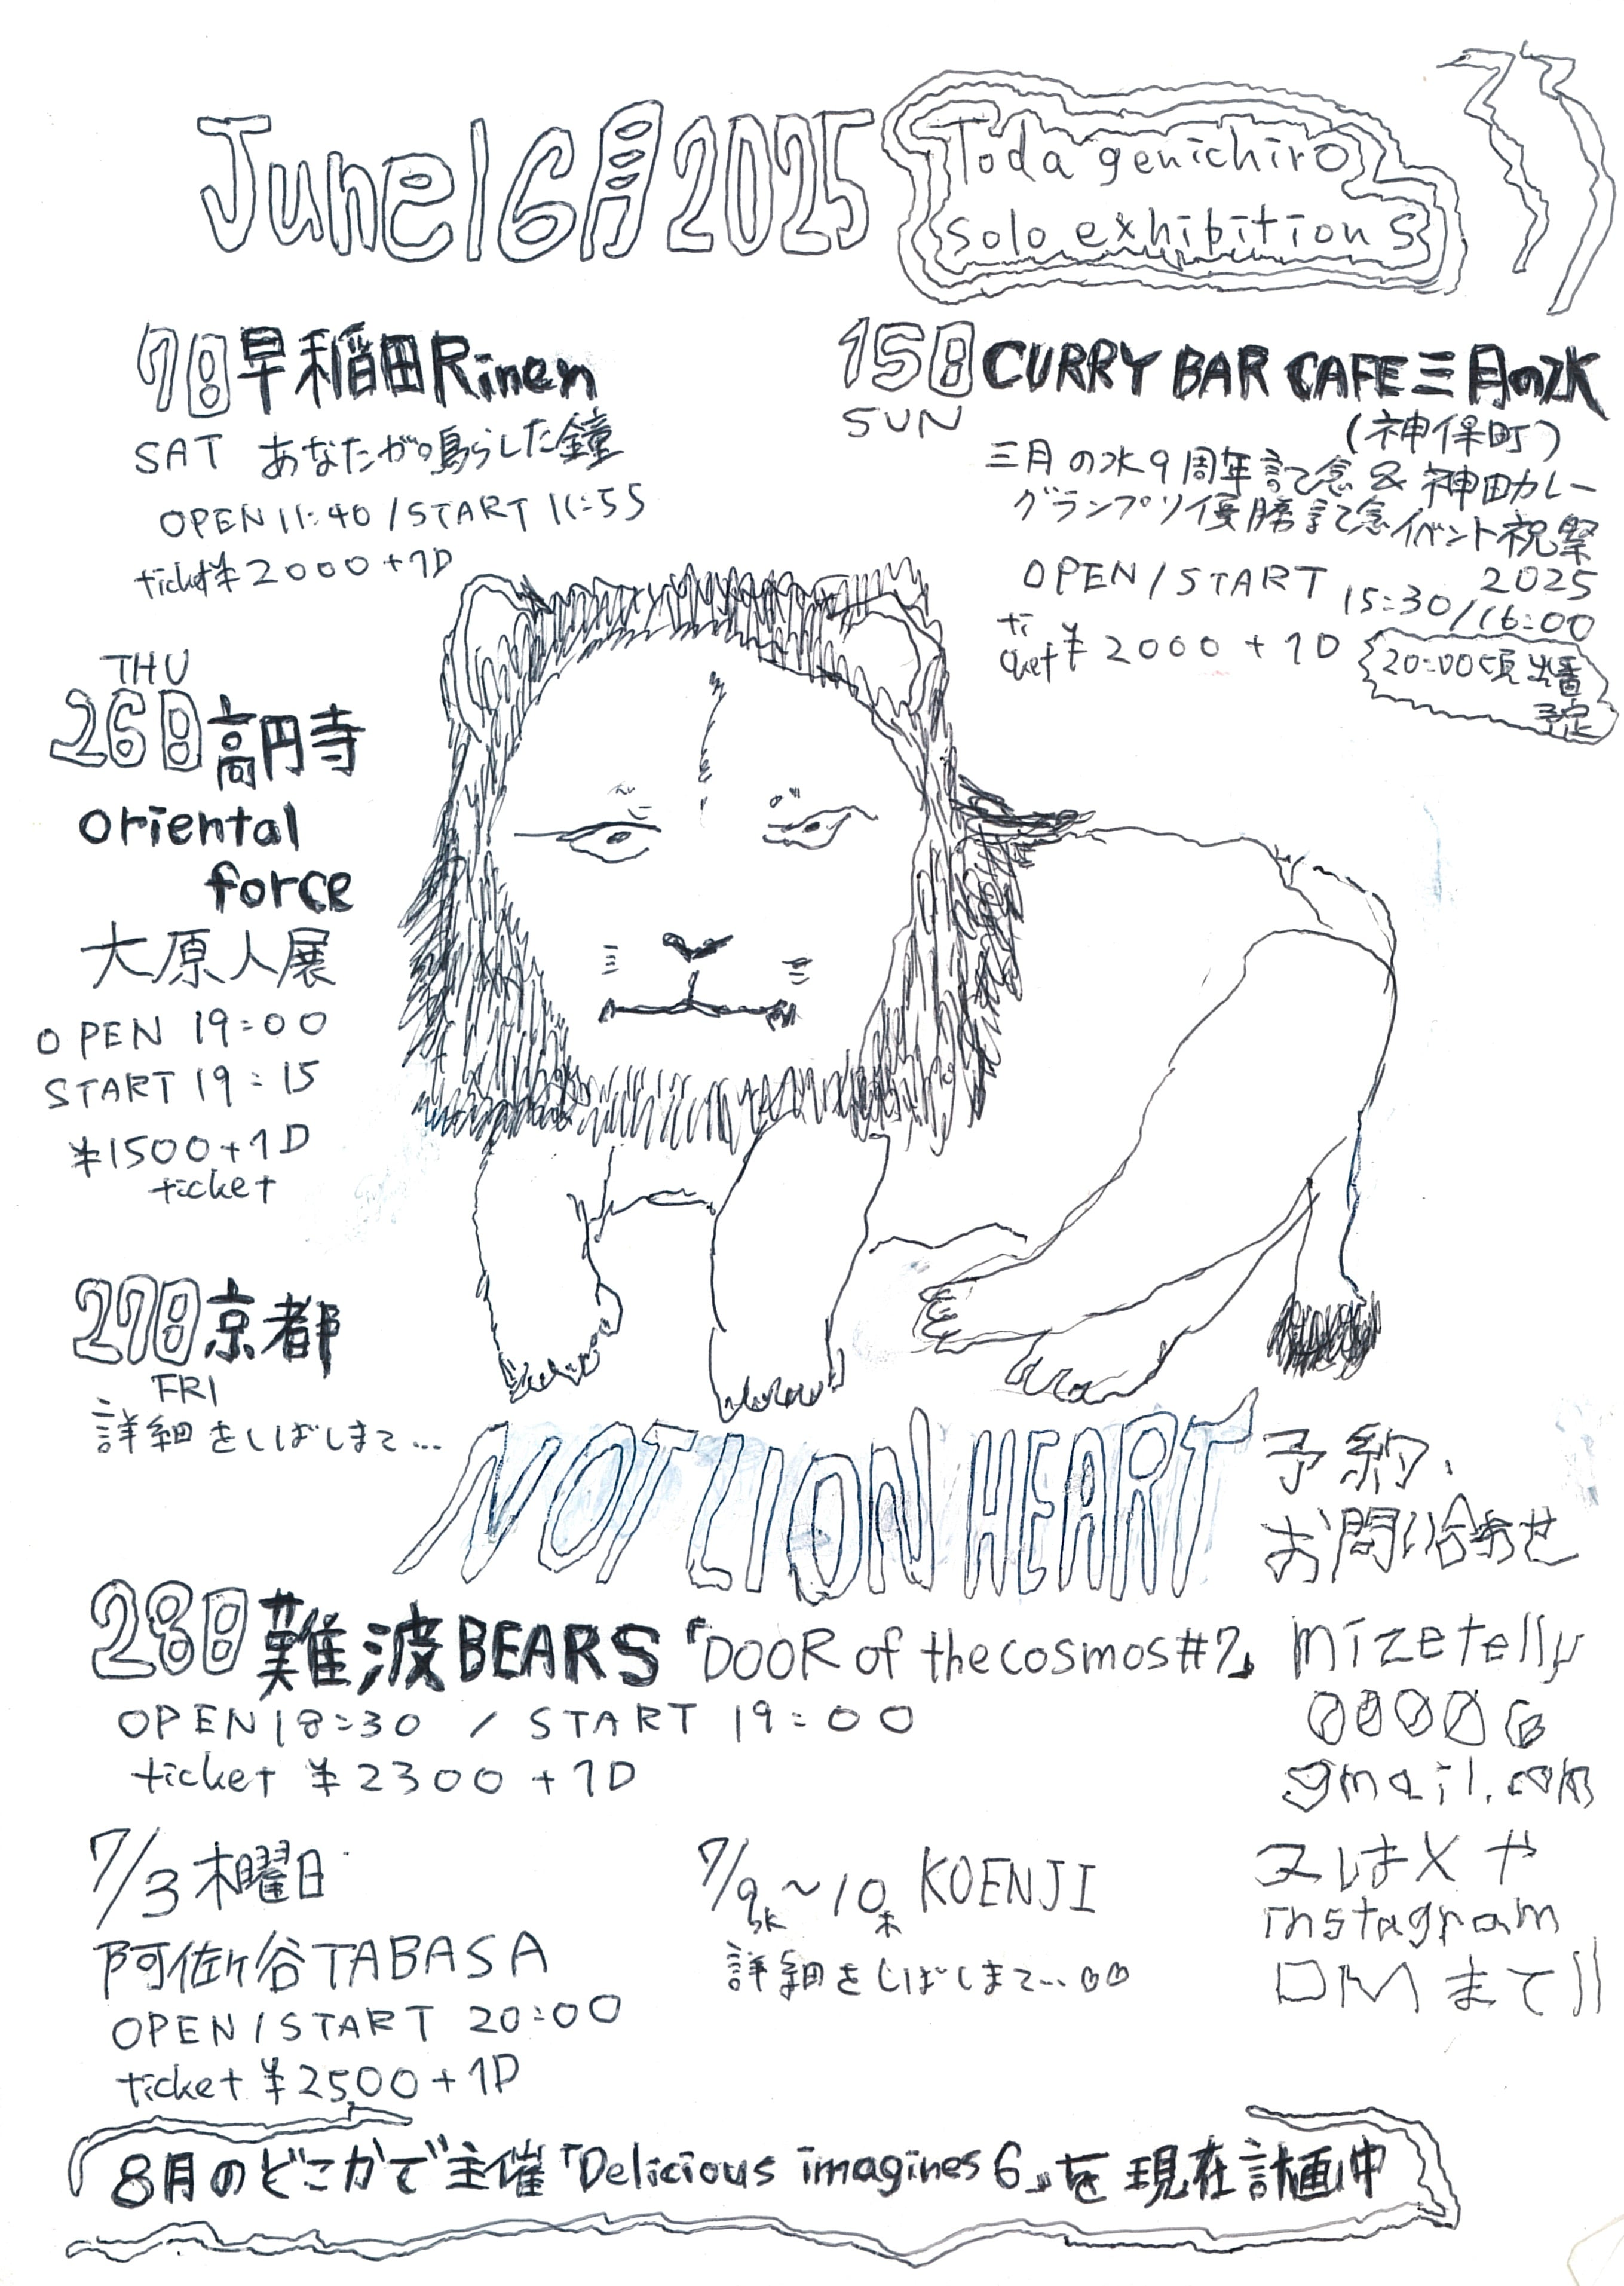 June 16月2025
Toda genichiro
solo exhibitions
7日早稲田Rinen
SAT あなたが鳴らした鐘
OPEN 11:40 / START 11:55
ticket ¥2000+1D
15日CURRY BAR CAFE三月の水
SUN
(神保町)
三月の水9周年記念 & 神田カレー
グランプリ優勝記念イベント祝祭
2025
OPEN/START 15:30/16:00
ticket ¥2000+1D
20:00頃出番
予定
THU
26日高円寺
oriental
force
大原人展
OPEN 19:00
START 19:15
¥1500+1D
ticket
27日京都
FRI
詳細をしばしまて...
NOT LION HEART
28日難波BEARS「DOOR of the cosmos#7」
OPEN 18:30 / START 19:00
ticket ¥2300+1D
予約、
お問い合わせ
mizetelly
00006
gmail.com
又はXや
instagram
DMまで!!
7/3木曜日
阿佐ヶ谷TABASA
OPEN/START 20:00
ticket ¥2500+1D
7/9水~10木 KOENJI
詳細をしばしまて...
8月のどこかで主催「Delicious imagines 6」を現在計画中